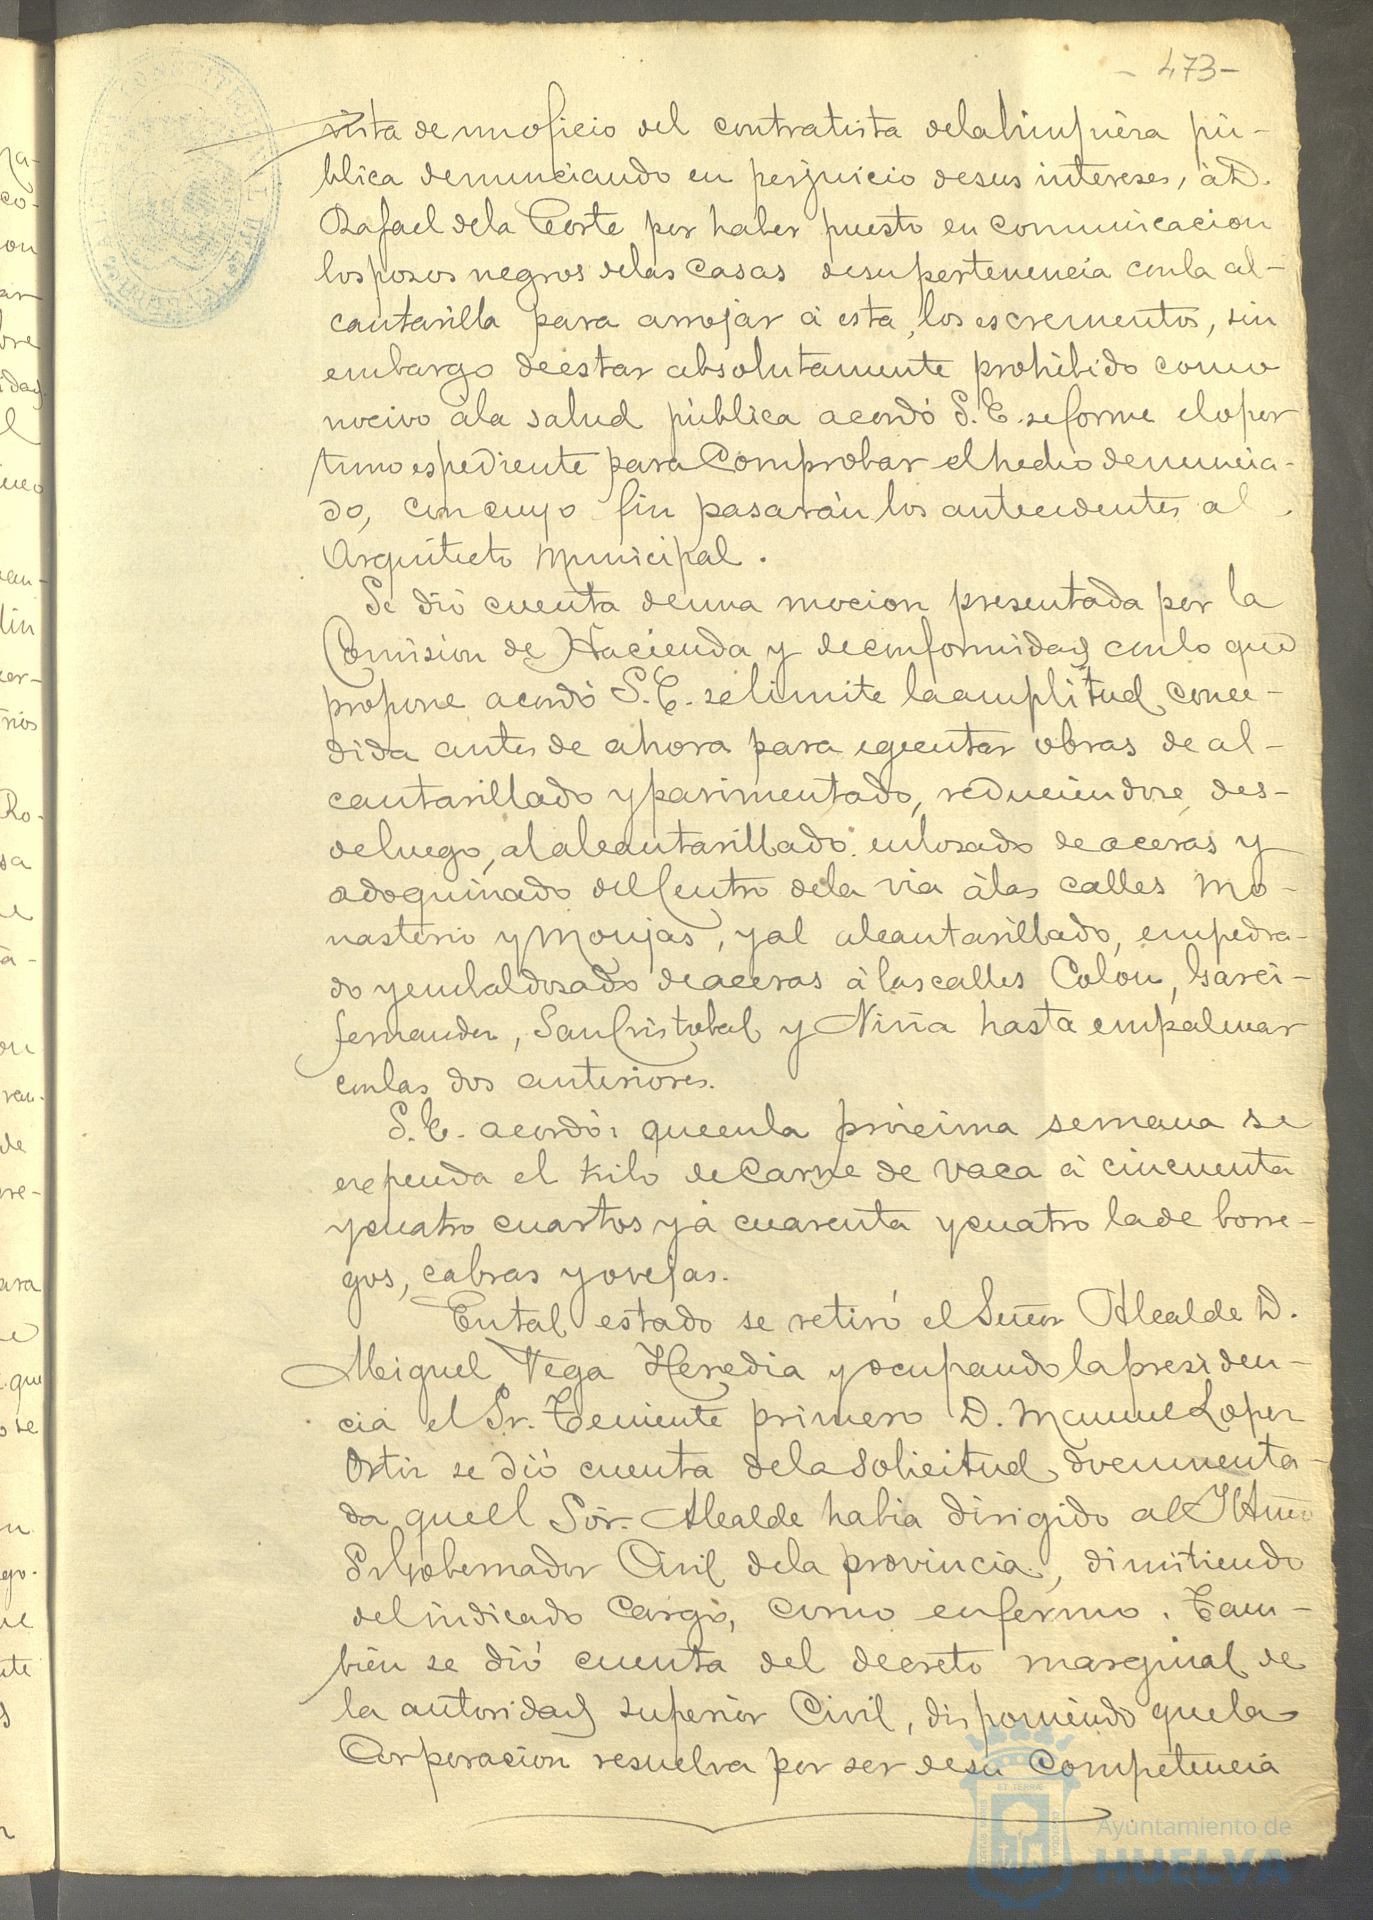 - 473 -
vista de un oficio del contratista de la limpiéza pú-
blica denunciando en perjuicio de sus intereses, á D.
Rafael de la Corte por haber puesto en comunicacion
los posos negros de las Casas de su pertenencia con la al-
cantarilla para arrojar á esta, los escrementos, sin
embargo de estar absolutamente prohibido como
nocivo á la salud pública acordó S. E. se forme el opor
tuno espediente para Comprobar el hecho denuncia-
do, con cuyo fin pasarán los antecedentes al
Arquitecto Municipal.
Se dió cuenta de una mocion presentada por la
Comision de Hacienda y de conformidad con lo que
propone acordó S. E. se limite la amplitud conce-
dida antes de ahora para egecutar obras de al-
cantarillado y parimentado, reduciéndose, des-
de luego, al alcantarillado enlosado de aceras y
adoquinado del Centro de la via á las calles Mo-
nasterio y Monjas, y al alcantarillado, empedra-
do y embaldosado de aceras á las calles Colon, Garci-
fernandez, San Cristobal y Niña hasta empalmar
con las dos anteriores.
S. E. acordó: que en la próxima semana se
expenda el kilo de Carne de vaca á cincuenta
y cuatro cuartos y á cuarenta y cuatro la de borre-
gos, cabras y ovejas.
En tal estado se retiró el Señor Alcalde D.
Miguel Vega Heredia y ocupando la presiden-
cia el Sr. Teniente primero D. Manuel Lopez
Ortiz se dió cuenta de la solicitud documenta-
da que el Sór. Alcalde habia dirigido al Iltmo
Sr Gobernador Civil de la provincia, dimitiendo
del indicado Cargo, como enfermo. Tam-
bién se dió cuenta del decreto marginal de
la autoridad superior Civil, disponiendo que la
Corporacion resuelva por ser de su Competencia
Ayuntamiento de
HUELVA